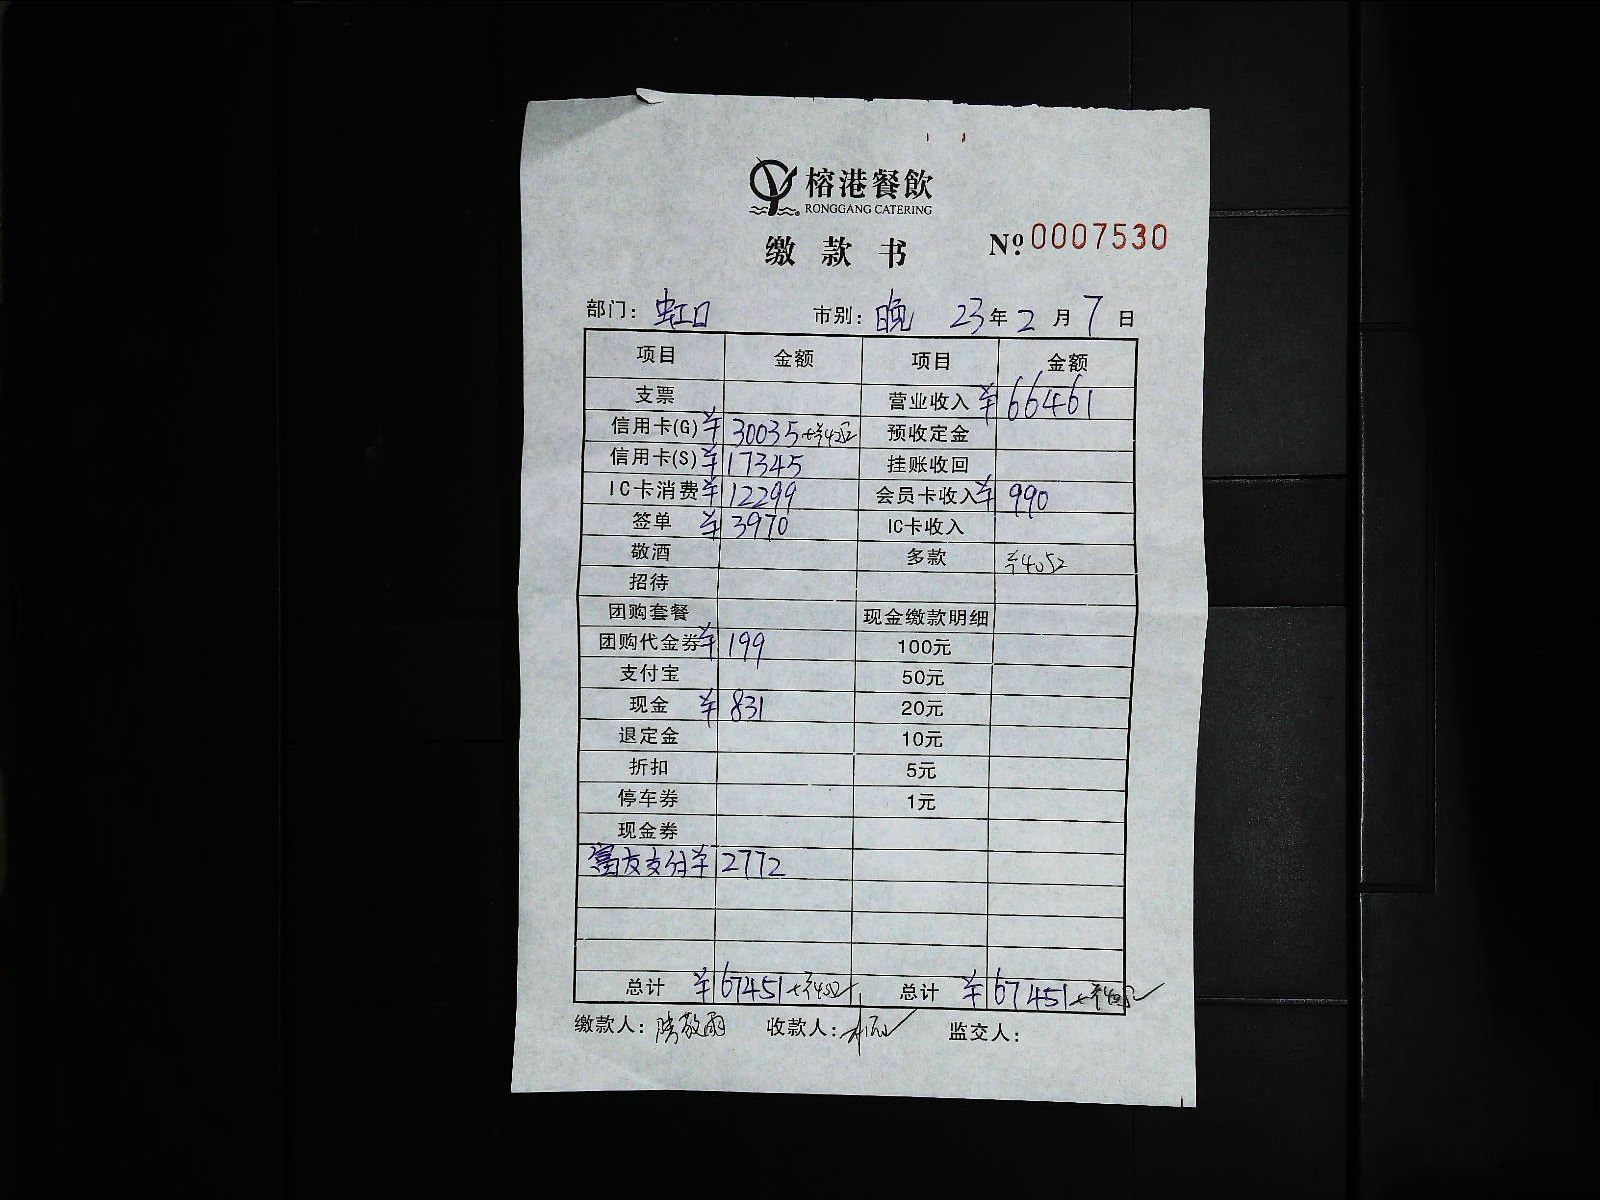 榕港餐飲
RONGGANG CATERING
缴款书 № 0007530
部门: 虹口 市别: 晚 23年2月7日
项目 金额 项目 金额
支票 营业收入 ¥66461
信用卡(G) ¥30035+¥4052 预收定金
信用卡(S) ¥17345 挂账收回
IC卡消费 ¥12299 会员卡收入 ¥990
签单 ¥3970 IC卡收入
敬酒 多款 ¥4052
招待
团购套餐 现金缴款明细
团购代金券 ¥199 100元
支付宝 50元
现金 ¥831 20元
退定金 10元
折扣 5元
停车券 1元
现金券
富友支付 ¥2772
总计 ¥67451+¥4052 总计 ¥67451+¥4052
缴款人: 收款人: 监交人: